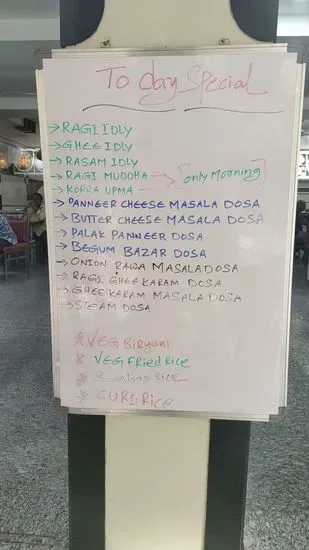 To day Special
→ RAGI IDLY
→ GHEE IDLY
→ RASAM IDLY
→ RAGI MUDDHA → [only Morning]
→ KORRA UPMA
→ PANNEER CHEESE MASALA DOSA
→ BUTTER CHEESE MASALA DOSA
→ PALAK PANNEER DOSA
→ BEGUM BAZAR DOSA
→ ONION RAWA MASALA DOSA
→ RAGI GHEE KARAM DOSA
→ GHEE KARAM MASALA DOSA
→ STEAM DOSA
* VEG Biryani
* VEG Fried Rice
* Sambar Rice
* CURD Rice